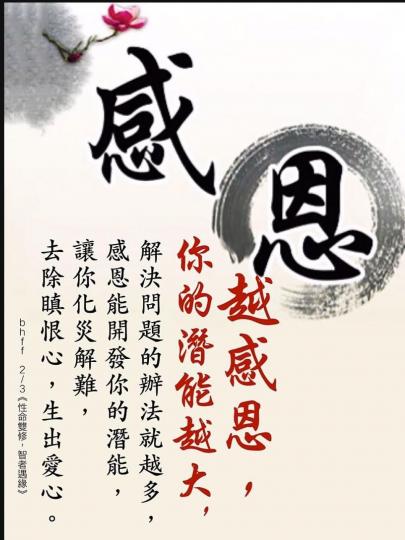 感恩
越感恩，
你的潛能越大，
解決問題的辦法就越多，
感恩能開發你的潛能，
讓你化災解難，
去除瞋恨心，生出愛心。
bhff 2/3《性命雙修，智者遇緣》